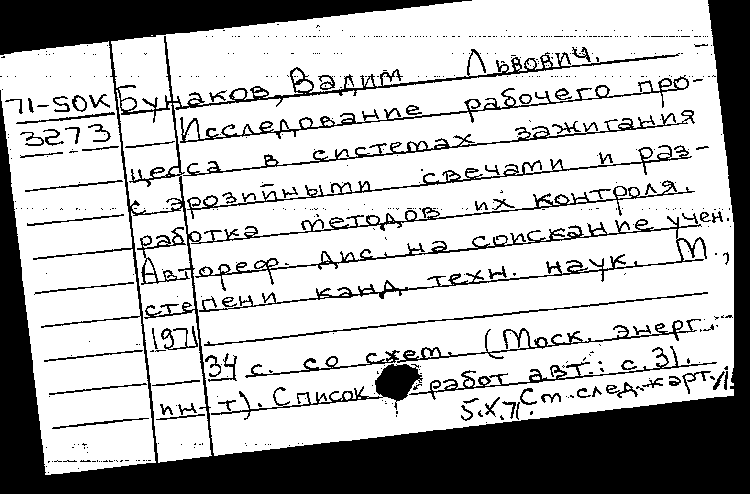 71-50К Бунаков, Вадим Львович.
3273 Исследование рабочего про-
цесса в системах зажигания
с эрозийными свечами и раз-
работка методов их контроля.
Автореф. дис. на соискание учен.
степени канд. техн. наук. М.,
1971.
34 с. со схем. (Моск. энерг.
ин-т). Список работ авт.: с. 31.
5.X.71. См. след. карт.